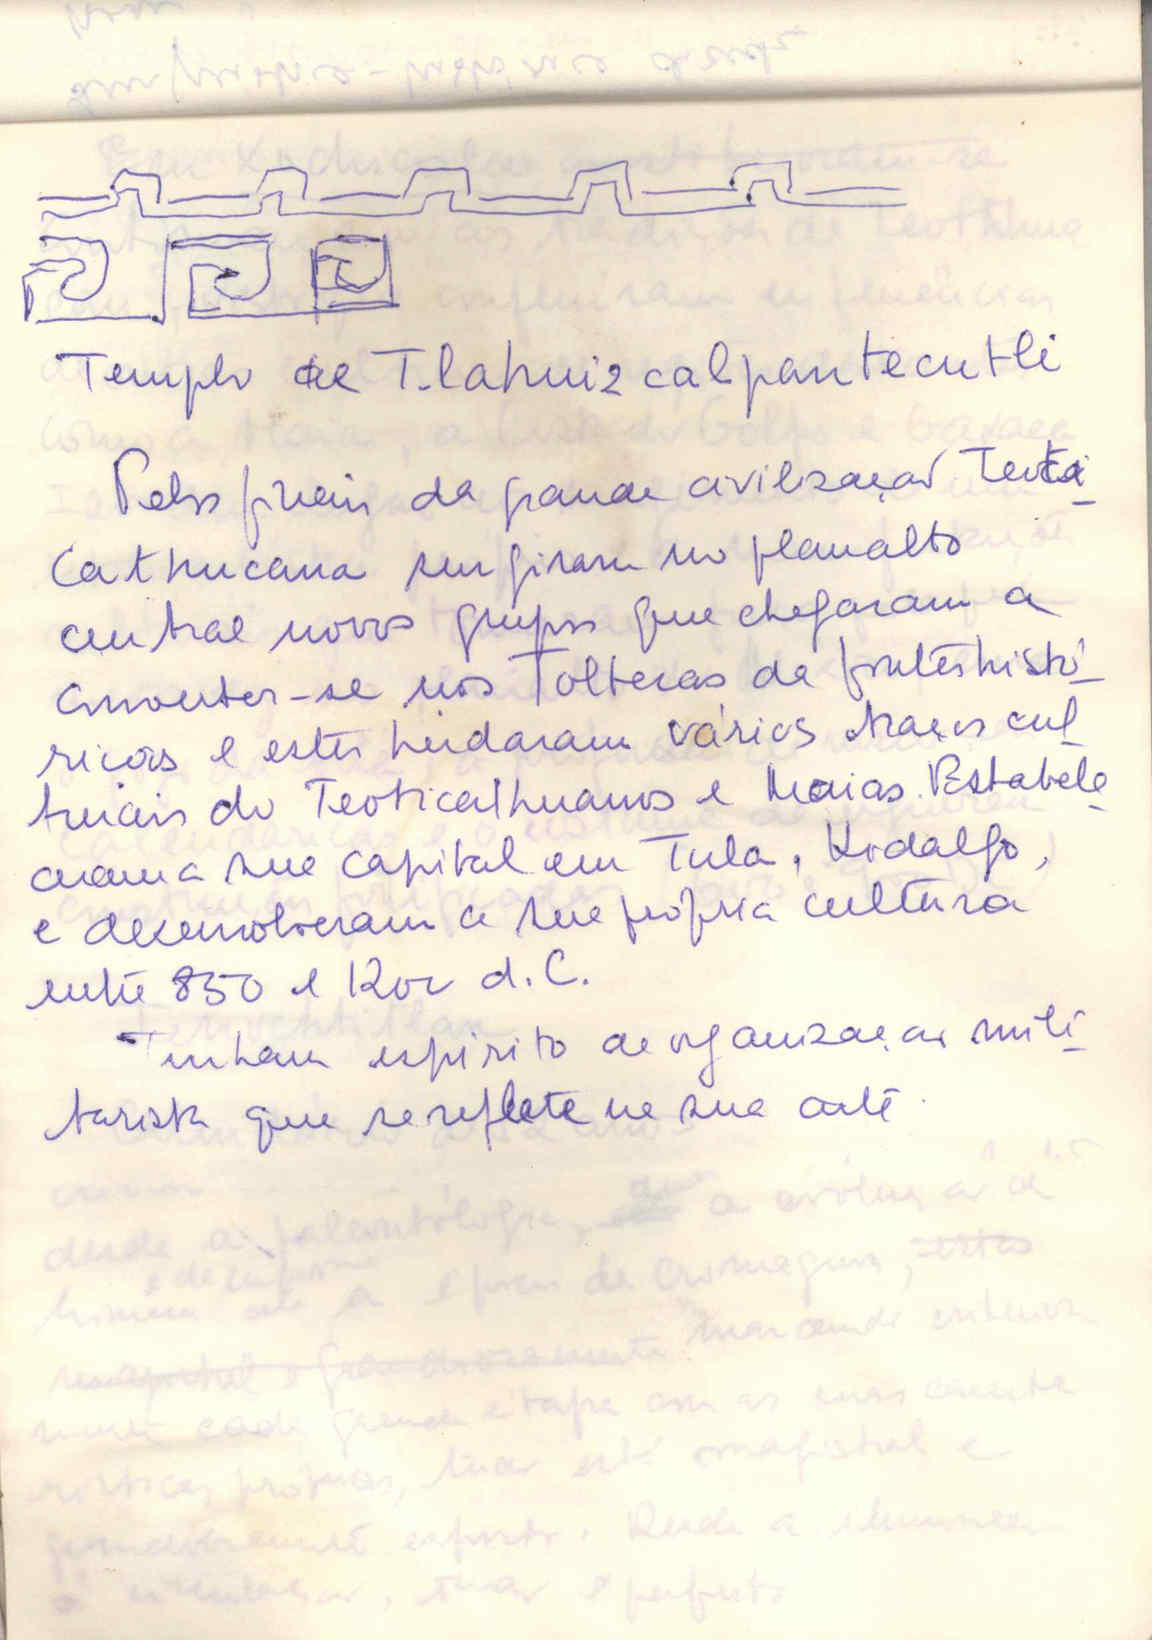 Templo de Tlahuizcalpantecutli
Pelos finais da grande civilização Teoti
cathucana surgiram no planalto
central novos grupos que chegaram a
converter-se nos Toltecas da fontes histó-
ricas e estes herdaram vários traços cul-
turais do Teoticalhuanos e Maias. Estabele-
ceram a sua capital em Tula, Hidalgo,
e desenvolveram a sua própria cultura
entre 850 e 1200 d.C.
Tinham espirito de organização mili-
tarista que se reflete na sua arte.